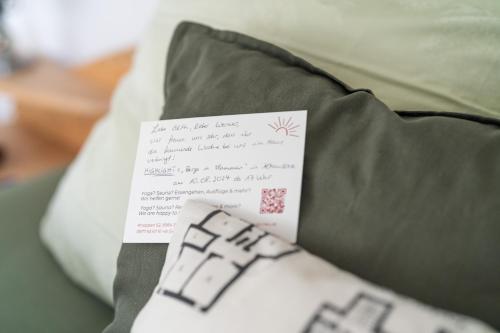 Liebe Beth, lieber Werner,
wir freuen uns sehr, dass ihr
die kommende Woche bei uns im Haus
verbringt!
HIGHLIGHT: "Berge in Flammen" in
am 10.08.2024 ab 17 Uhr
Yoga? Sauna? Essengehen, Ausflüge & mehr?
Wir helfen gerne!
Yoga? Sauna? & more?
We are happy to